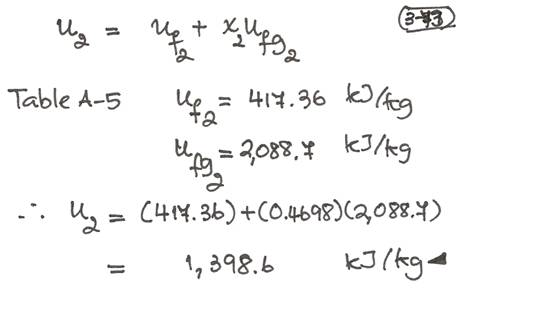 u₂ = u_f₂ + x₂u_fg₂ (3-73)
Table A-5 u_f₂ = 417.36 kJ/kg
u_fg₂ = 2,088.7 kJ/kg
∴ u₂ = (417.36)+(0.4698)(2,088.7)
= 1,398.6 kJ/kg ◄